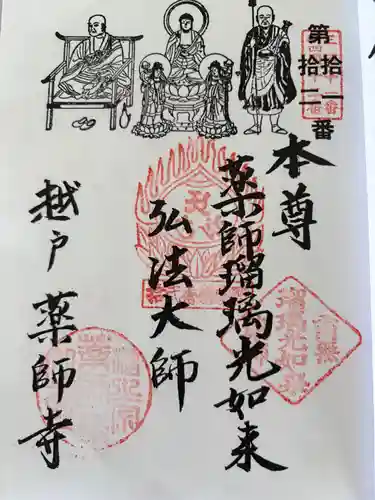 第拾一番
拾二
本尊
薬師瑠璃光如来
弘法大師
越戸 薬師寺